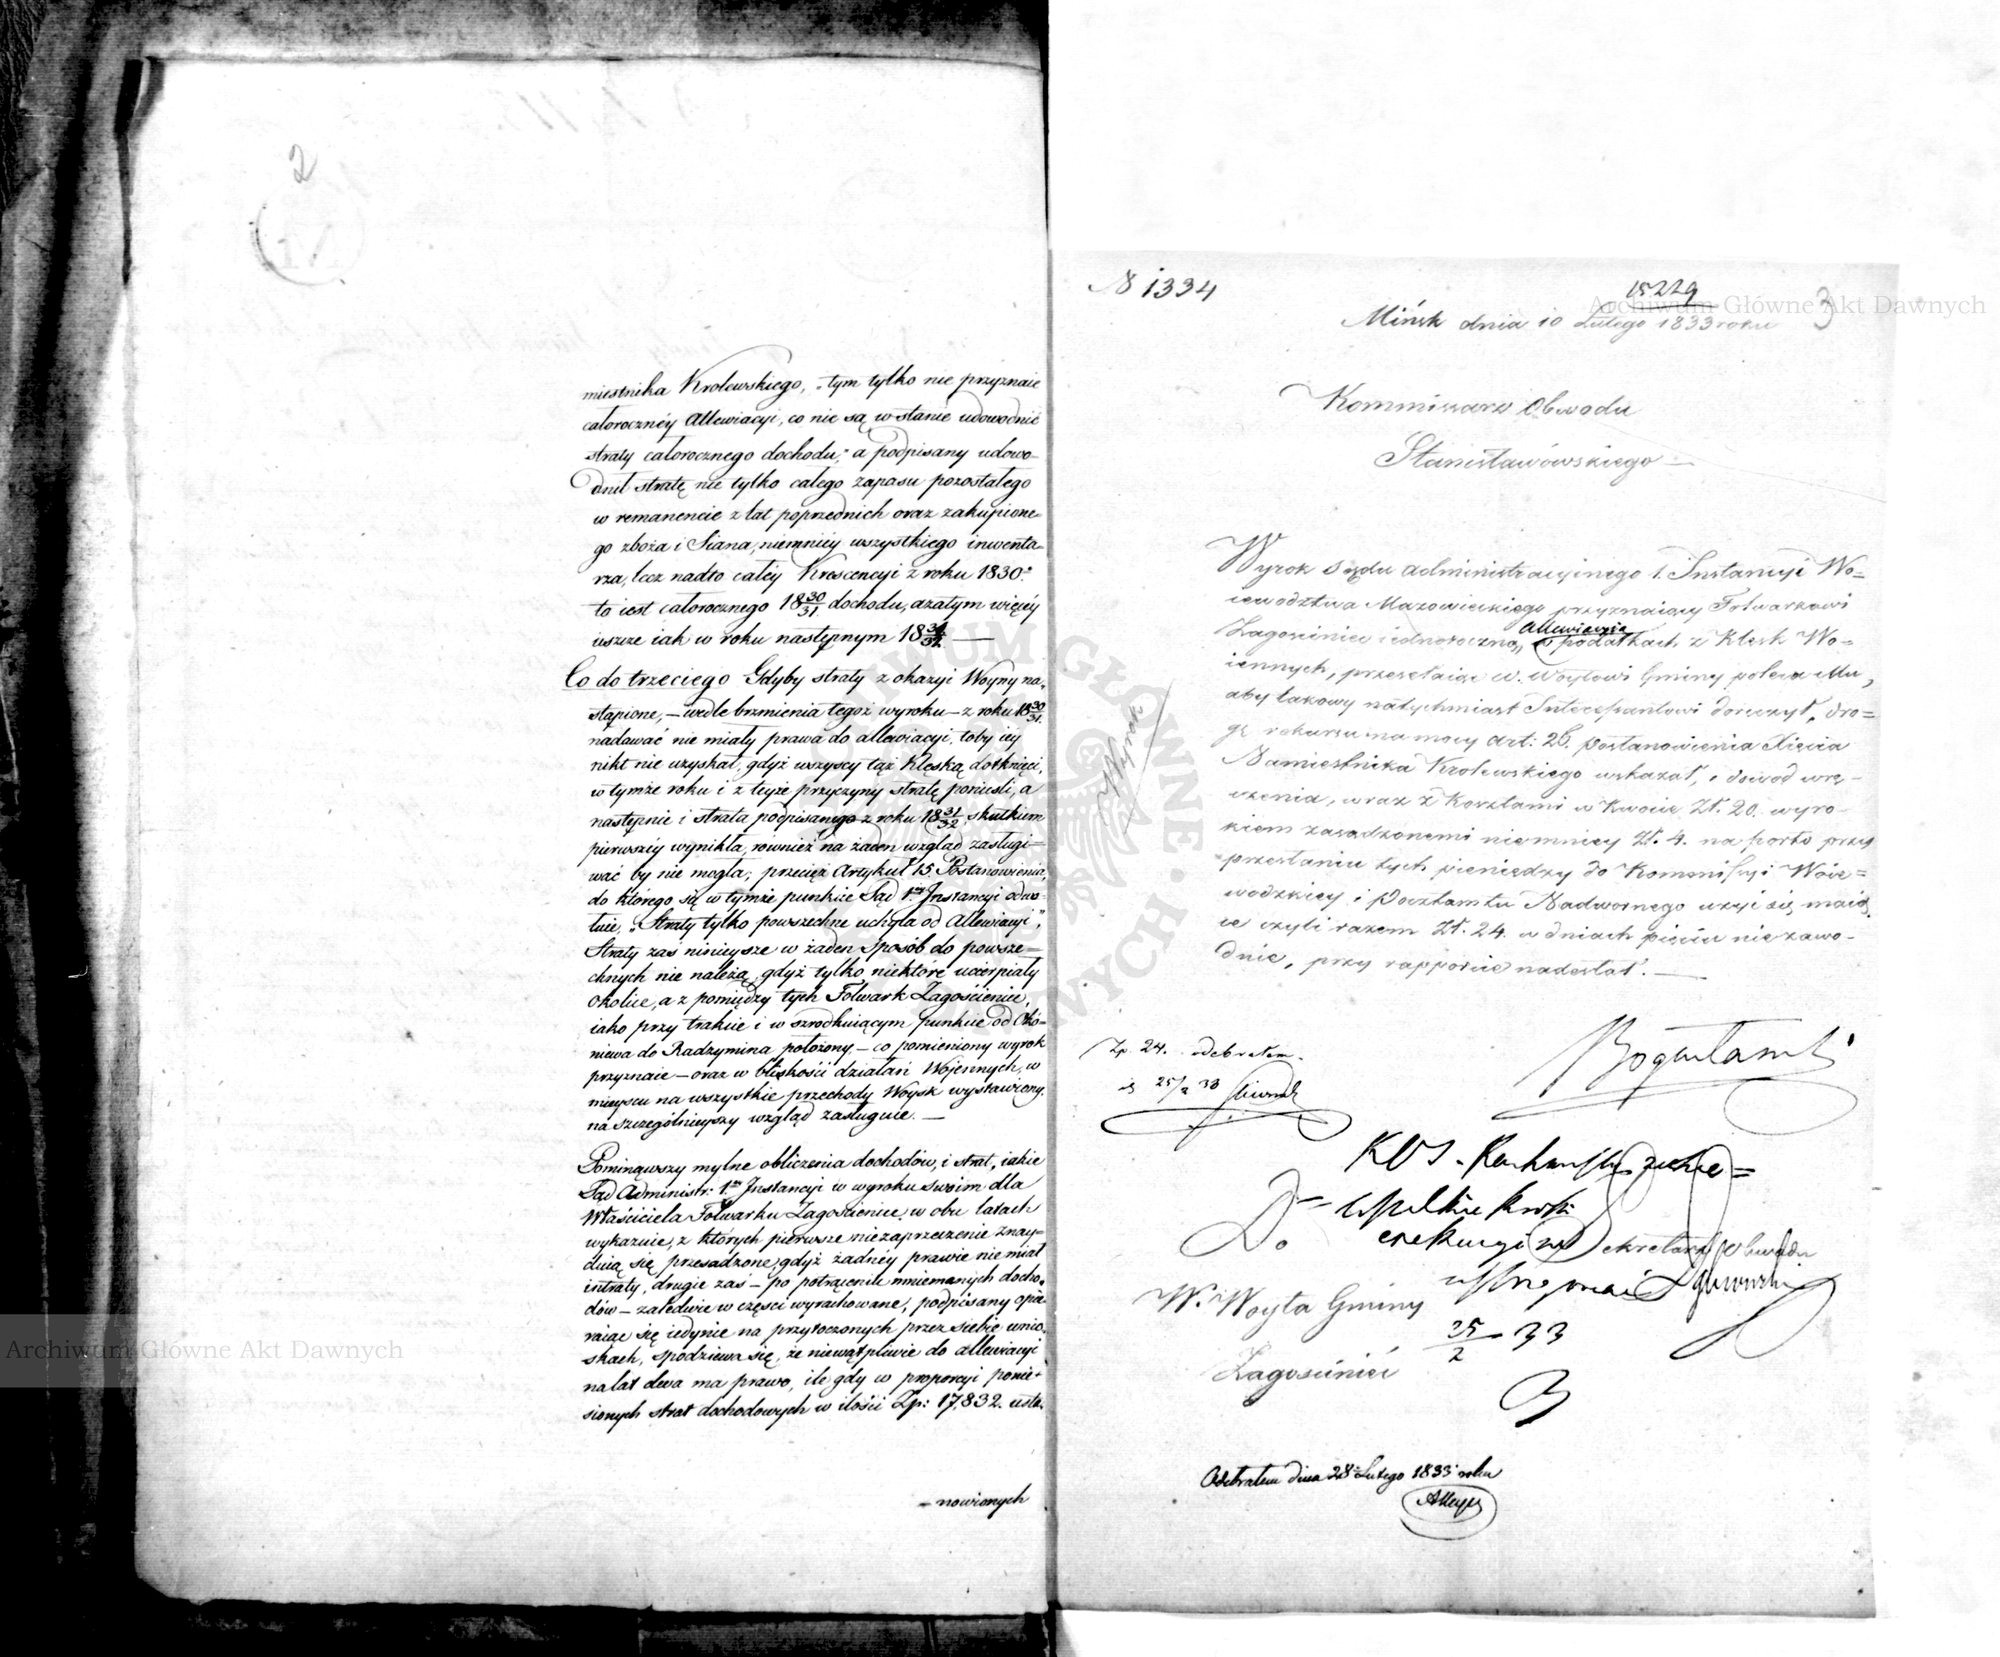 2
miestnika Krolewskiego, „tym tylko nie przyznaie
całorocznéy Allewiacyi, co nie są w stanie udowodnić
straty całorocznego dochodu;" a podpisany udowo-
dnił stratę nie tylko całego zapasu pozostałego
w remanencie z lat poprzednich oraz zakupione-
go zboża i Siana, niemniéy wszystkiego inwenta-
rza, lecz nadto całéy Krescencyi z roku 1830.
to iest całorocznego 18 30/31 dochodu, a zatym więcéy
ieszcze iak w roku następnym 18 31/32. —
Co do trzeciego Gdyby straty z okazyi Woyny na-
stąpione, — wedle brzmienia tegoż wyroku — z roku 18 30/31.
nadawać nie miały prawa do allewiacyi, toby iéy
nikt nie uzyskał, gdyż wszyscy tąż Klęską dotknięci,
w tymże roku i z teyże przyczyny stratę ponieśli, a
następnie i strata podpisanego z roku 18 31/32, skutkiem
pierwszéy wynikła, również na żaden wzgląd zasługi-
wać by nie mogła; przecięż Artykuł 15. Postanowienia,
do którego się w tymże punkcie Sąd 1éy Instancyi odwo-
łuie, „Straty tylko powszechne uchyla od Allewiacyi",
Straty zaś ninieysze w żaden sposób do powsze-
chnych nie należą, gdyż tylko niektóre ucierpiały
okolice, a z pomiędzy tych Folwark Zagościeniec,
iako przy trakcie i w szrodkuiącym punkcie od Oku-
niewa do Radzymina położony — co pomieniony wyrok
przyznaie — oraz w bliskości działań Wojennych, w
mieyscu na wszystkie przechody Woysk wystawiony,
na szczególnieyszy wzgląd zasługuie. —
Pominąwszy mylne obliczenia dochodów, i strat, iakie
Sąd Administr: 1éy Instancyi w wyroku swoim dla
Właściciela Folwarku Zagościeniec, w obu latach
wykazuie, z których pierwsze niezaprzeczenie znay-
duią się przesadzone, gdyż żadnéy prawie nie miał
intraty, drugie zaś — po potrąceniu mniemanych docho-
dów — zaledwie w części wyrachowane, podpisany opie-
raiąc się iedynie na przytoczonych przez siebie wnio-
skach, spodziewa się, że niewątpliwie do allewiacyi
na lat dwa ma prawo, ile gdy w proporcyi ponie-
sionych strat dochodowych w ilości Zp: 17,832. usta-
- nowionych
N 1334
15229
3
Mińsk dnia 10 Lutego 1833 roku
Kommissarz Obwodu
Stanisławówskiego —
Wyrok Sądu administracyinego 1. Instancyi Wo-
iewodztwa Mazowieckiego przyznaiący Folwarkowi
Allewiacyię
Zagosciniec iednoroczną w podatkach z Klęsk Wo-
iennych, przesełaiąc W. Woytowi Gminy poleca Mu,
aby takowy natychmiast Interessantowi doręczył, dro-
gę rekursu na mocy art: 26. postanowienia Xięcia
Namiestnika Krolewskiego wskazał, i dowod wrę-
czenia, wraz z Kosztami w Kwocie Zł. 20. wyro-
kiem zasądzonemi niemniey Zł. 4. na porto przy
przesłaniu tych pieniędzy do Kommissyi Woie-
wodzkiey i Pocztamtu Nadwornego użyć się maią-
ce czyli razem Zł. 24. w dniach pięciu niezawo-
dnie, przy rapporcie nadesłał. —
Zp. 24. odebrałem.
25/2 33
Do
Sekretarz Obwodu
W. Woyta Gminy
25/2 33
Zagościniec
Odebrałem dnia 28 Lutego 1833 roku
Archiwum Główne Akt Dawnych
Archiwum Główne Akt Dawnych